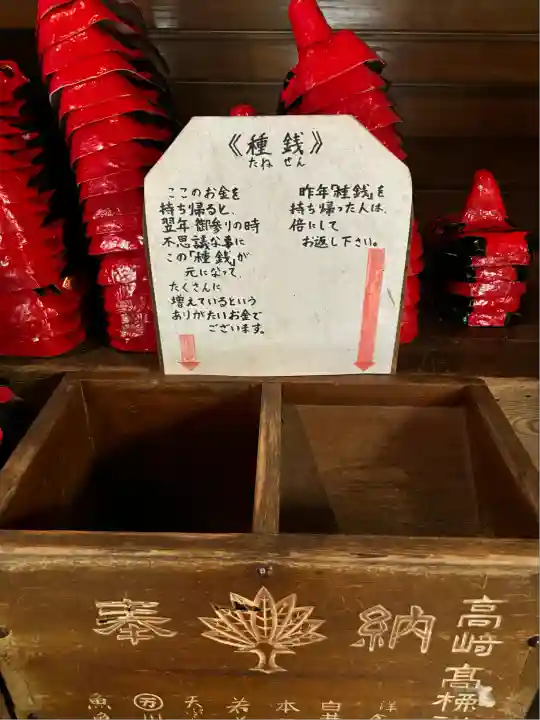 《種銭》
たね せん
ここのお金を
持ち帰ると、
翌年 御参りの時
不思議な事に
この「種銭」が
元になって、
たくさんに
増えているという
ありがたいお金で
ございます。
昨年「種銭」を
持ち帰った人は、
倍にして
お返し下さい。
奉 納
高崎 高橋
魚 万 川 天ぷ 若 本 白井 洋